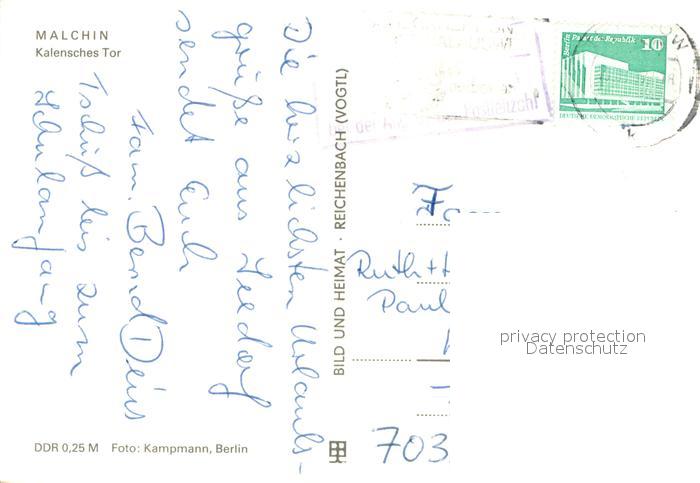 MALCHIN
Kalensches Tor
Die herzlichsten Urlaubs-
grüße aus Seedorf
sendet Euch
Fam. Bernd Deus
Tschüß bis zum
Schulanfang
DDR 0,25 M Foto: Kampmann, Berlin
BILD UND HEIMAT · REICHENBACH (VOGTL)
bei der Postleitzahl
Berlin Palast der Republik 10
Ruth + H
Paul
703
privacy protection
Datenschutz